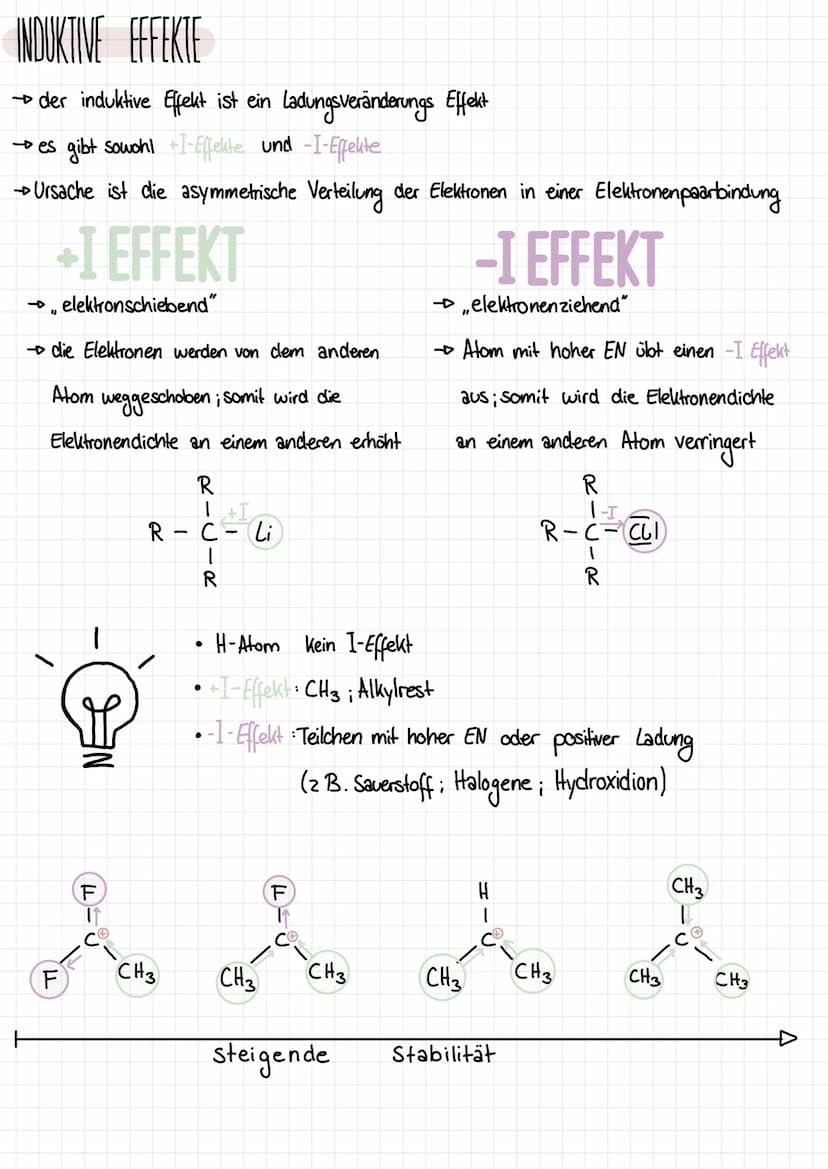 INDUKTIVE EFFEKTE
→ der induktive Effekt ist ein Ladungsveränderungs Effekt
→ es gibt sowohl +I-Effekte und -I-Effekte
→ Ursache ist die asymmetrische Verteilung der Elektronen in einer Elektronenpaarbindung
+I EFFEKT
→ „elektronschiebend"
→ die Elektronen werden von dem anderen
Atom weggeschoben; somit wird die
Elektronendichte an einem anderen erhöht
R
+I
R – C – Li
R
-I EFFEKT
→ „elektronenziehend"
→ Atom mit hoher EN übt einen -I Effekt
aus; somit wird die Elektronendichte
an einem anderen Atom verringert
R
-I
R – C – Cl
R
• H-Atom kein I-Effekt
• +I-Effekt: CH₃; Alkylrest
• -I-Effekt: Teilchen mit hoher EN oder positiver Ladung
(z B. Sauerstoff; Halogene; Hydroxidion)
F F H CH₃
C⊕ C⊕ C⊕ C⊕
F CH₃ CH₃ CH₃ CH₃ CH₃ CH₃ CH₃
steigende Stabilität